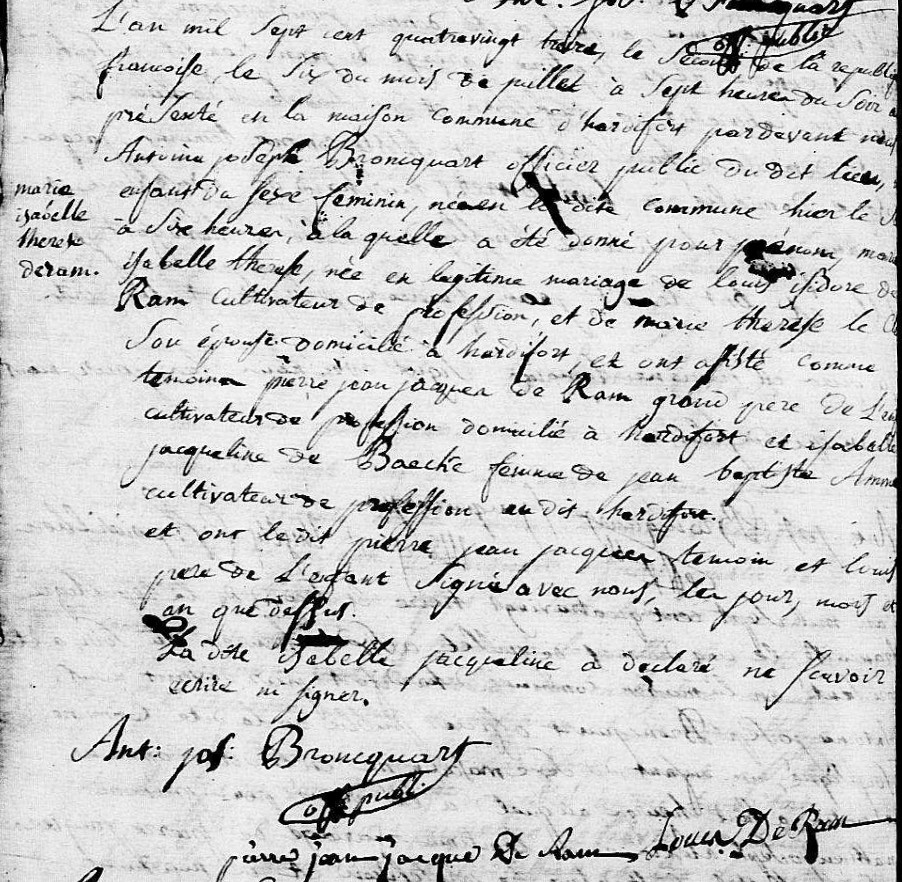 Ant. Jos. Broncquart
off: public
L'an mil Sept cent quatrevingt treize, le Second de la republiq
francoise, le Six du mois de juillet à Sept heures du Soir a
présenté en la maison commune d'hardifort pardevant nous
Antoine joseph Broncquart officier public du dit lieu,
enfant du sexe féminin, née en la dite commune hier le
à Six heures, à la quelle a été donné pour prénom, marie
isabelle therese, née en legitime mariage de louis isidore de
Ram cultivateur de profession, et de marie therese le
Son épouse domicilié à hardifort, et ont assisté comme
temoins pierre jean jacques de Ram grand pere de L'en
cultivateur de profession domicilié à hardifort et isabelle
jacqueline de Baecke femme de jean baptiste Amm
cultivateur de profession au dit hardifort.
et ont le dit pierre jean jacques, temoin et louis
pere de L'enfant Signé avec nous, les jour, mois et
an que dessus.
La dite isabelle jacqueline a declaré ne scavoir
ecrire ni signer.
marie
isabelle
therese
deram.
Ant: jos: Broncquart
off publ:
pierre jean jacque De Ram Louis De Ram